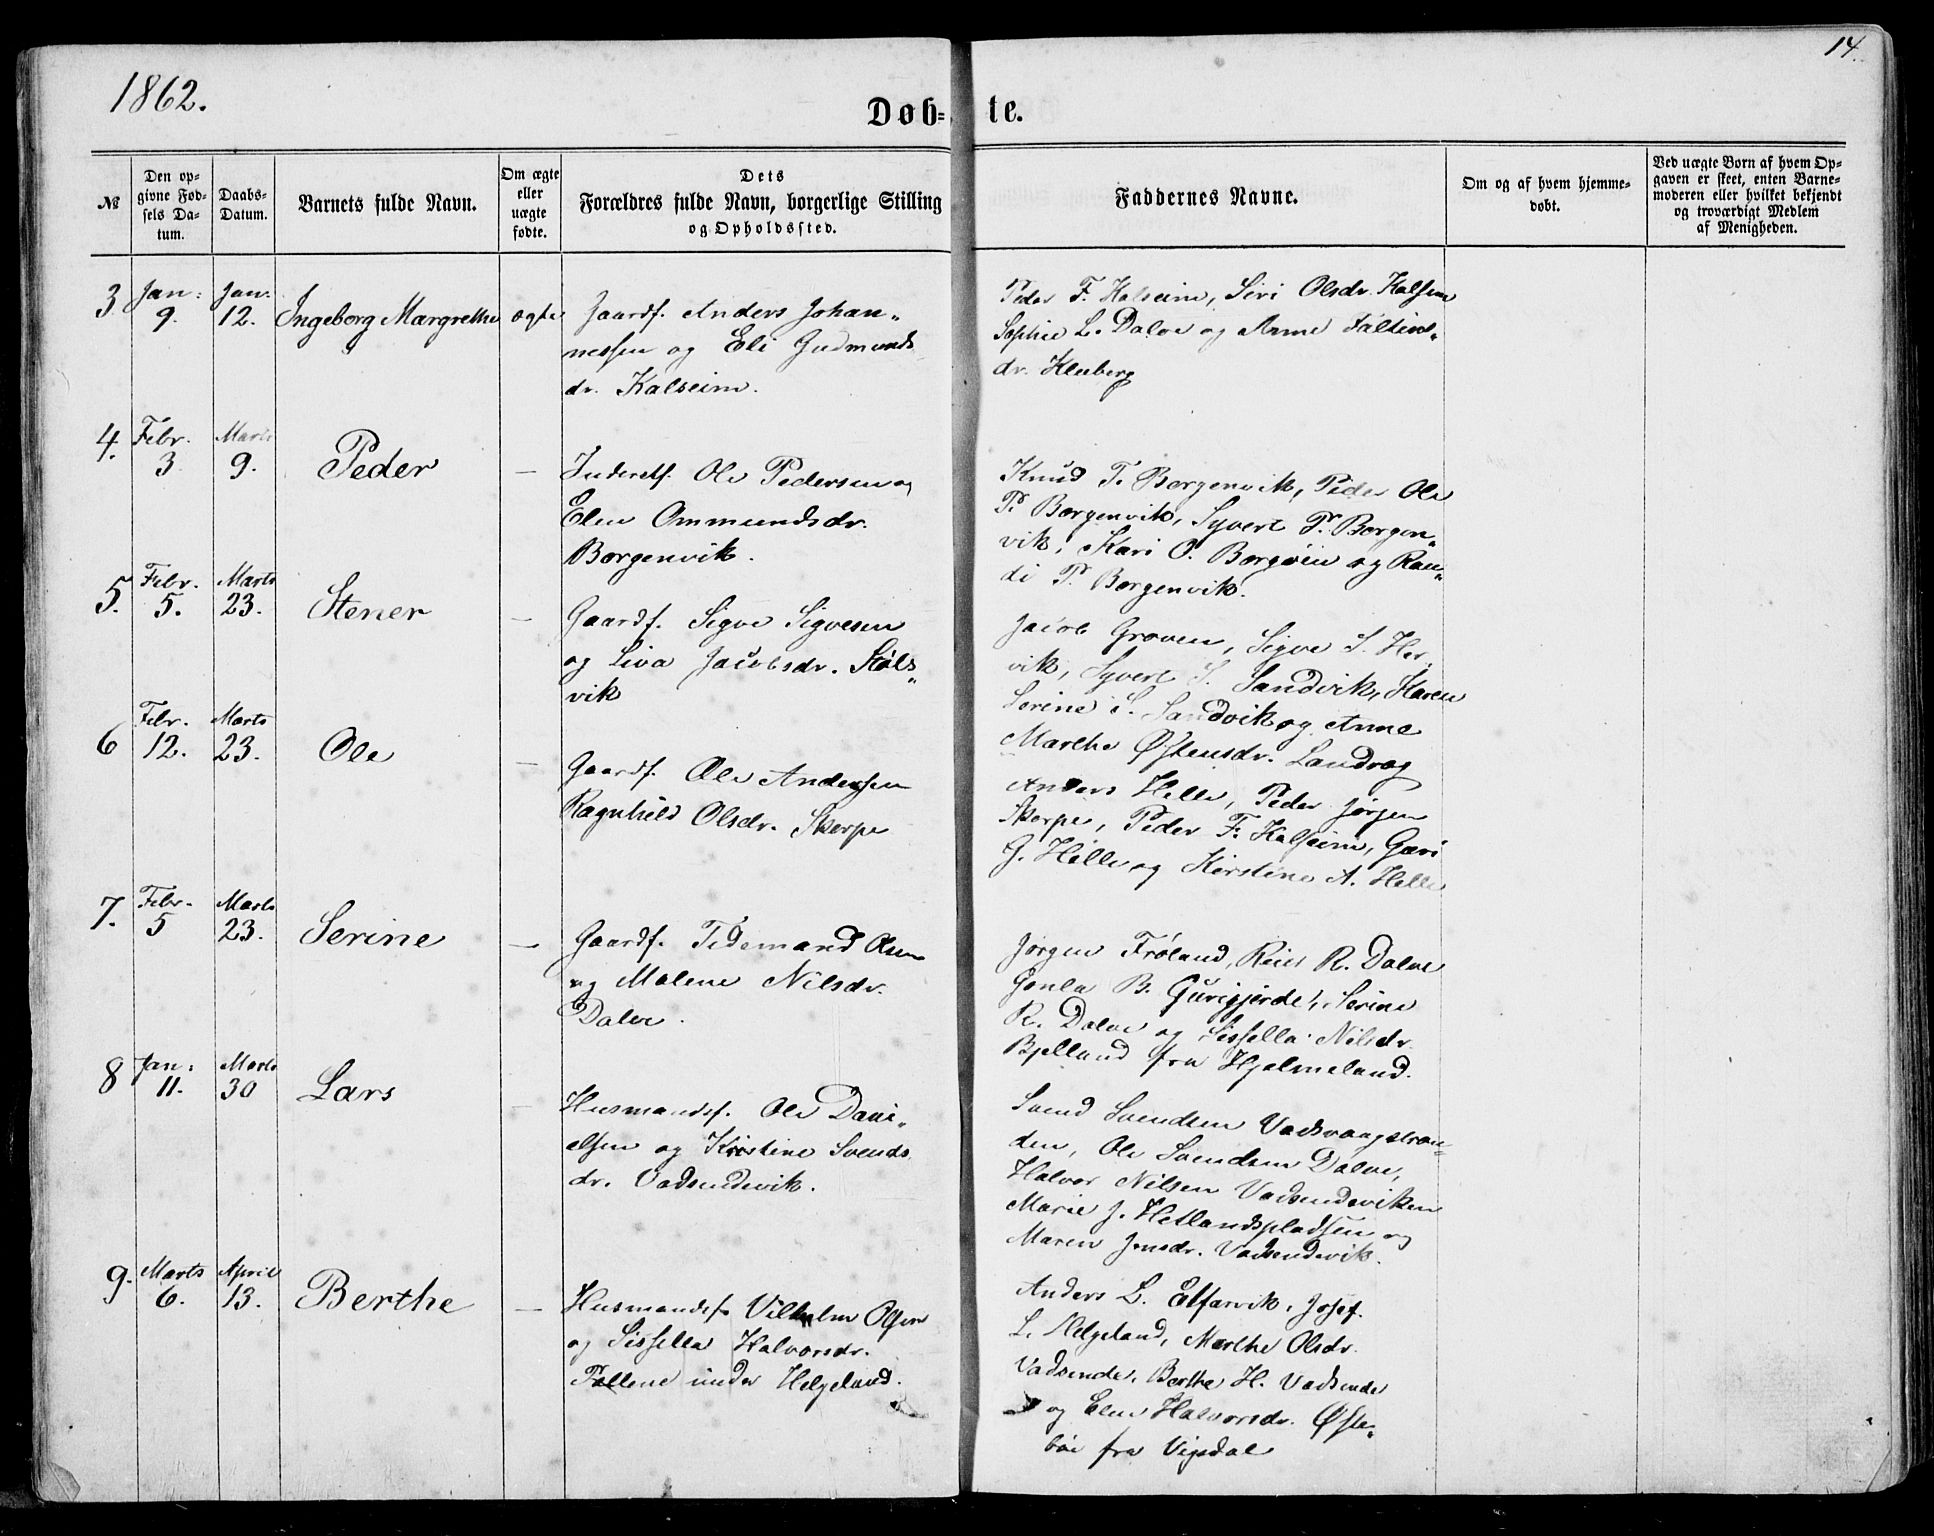 1862.
14.
Døb=te.
№
Den op=
givne Fød=
sels Da=
tum.
Daabs=
Datum.
Barnets fulde Navn.
Om ægte
eller
uægte
fødte.
Dets
Forældres fulde Navn, borgerlige Stilling
og Opholdssted.
Faddernes Navne.
Om og af hvem hjemme=
døbt.
Ved uægte Børn af hvem Op=
gaven er skeet, enten Barne=
moderen eller hvilket bekjendt
og troværdigt Medlem
af Menigheden.
3.
Jan:
9.
Jan:
12.
Ingeborg Margrethe
ægte
Gaardf. Anders Johan„
nessen og Eli Gudmunds
dr. Kalseim.
Peder F. Kalseim, Siri Olsdr. Kalseim
Sophie L. Dalve og Anne Faltins„
dr. Kleiberg
4.
Febr.
3
Marts
9.
Peder
—
Inderstf. Ole Pedersen og
Elen Ommundsdr.
Borgenvik.
Knud T. Borgenvik, Peder Ole
P. Borgenvik, Syvert P. Borgen„
vik, Kari O. Borgøien og Ran„
di P. Borgenvik.
5.
Febr.
5.
Marts
23.
Stener
—
Gaardf. Sigve Sigvesen
og Siva Jacobsdr. Støls„
vik
Jacob Groven, Sigve S. Her„
vik, Syvert S. Sandvik, Karen
Serine S. Sandvik og Anne
Marthe Østensdr. Landrog
6
Febr.
12.
Marts
23.
Ole
—
Gaardf. Ole Andersen
Ragnhild Olsdr. Skerpe
Anders Helle, Peder Jørgen
Skerpe, Peder F. Kalseim, Guri
G. Helle og Kirstine A. Helle
7.
Febr.
5
Marts
23.
Serine
—
Gaardf. Tidemand Olsen
og Malene Nilsdr.
Dalve.
Jørgen Frøland, Reier R. Dalve
Gunla B. Gurigjerde, Serine
R. Dalve og Sissella Nilsdr.
Bjelland fra Hjelmeland.
8
Jan:
11.
Marts
30
Lars
—
Husmandsf. Ole Dani„
elsen og Kirstine Svends
dr. Vadsendevik.
Svend Svendsen Vadsvaagstran„
den, Ole Svendsen Dalve,
Halvor Nilsen Vadsendeviken
Marie J. Hetlandspladsen og
Maren Jensdr. Vadsendevik.
9.
Marts
6.
April
13.
Berthe
—
Husmandsf. Vilhelm Olsen
og Sissella Halvorsdr.
Pollene under Helgeland.
Anders L. Elfarvik, Josef
L. Helgeland, Marthe Olsdr.
Vadsende, Berthe H. Vadsende
og Elen Halvorsdr. Øste„
bøe fra Vigedal